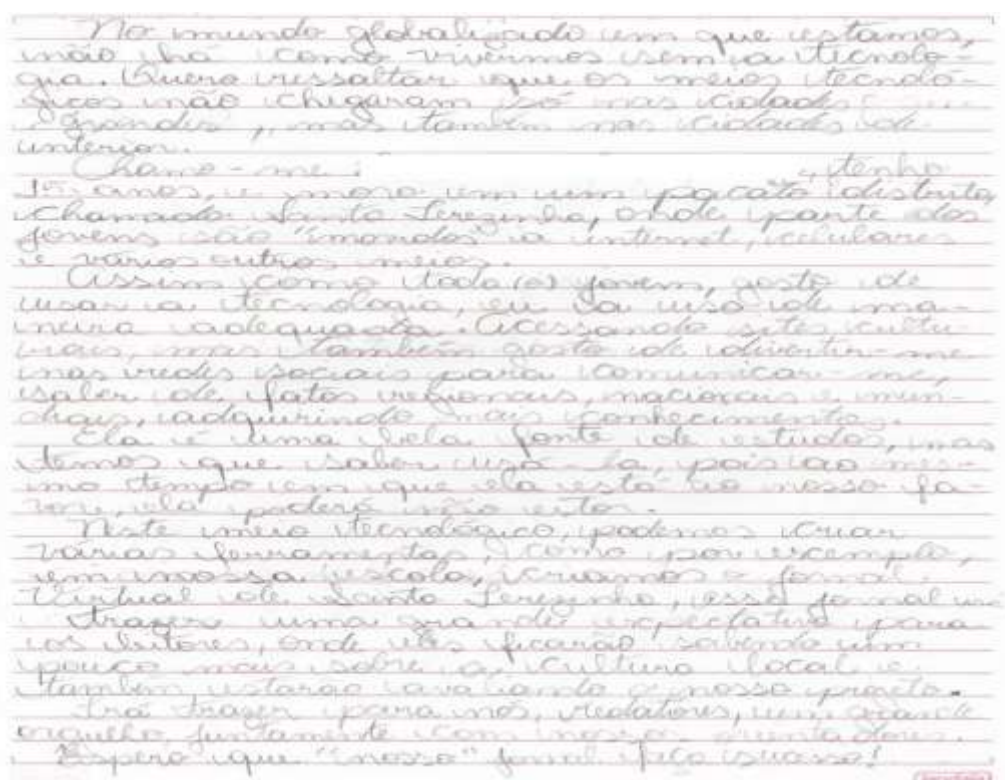 No mundo globalizado em que estamos,
não há como vivermos sem a tecnolo-
gia. Quero ressaltar que os meios tecnoló-
gicos não chegaram só nas cidades
grandes, mas também nas cidades de
interior.
Chamo-me: , tenho
15 anos, e moro em um pacato distrito,
chamado Santa Terezinha, onde parte dos
jovens são "imandos" a internet, celulares
e vários outros meios.
Assim como todo (a) jovem, gosto de
usar a tecnologia, eu a uso de ma-
neira adequada. Acessando sites cultu-
rais, mas também gosto de divertir-me
nas redes sociais para comunicar-me,
saber de fatos regionais, nacionais e mun-
diais, adquirindo mais conhecimentos.
Ela é uma bela fonte de estudos, mas
temos que saber usá-la, pois ao mes-
mo tempo em que ela está ao nosso fa-
vor, ela poderá não estar.
Neste meio tecnológico, podemos criar
várias ferramentas, como por exemplo,
em nossa escola, criamos o jornal
Virtual de Santa Terezinha, esse jornal irá
trazer uma grande expectativa para
os leitores, onde eles ficarão sabendo um
pouco mais sobre a cultura local e
também, estarão avaliando o nosso projeto.
Irá trazer para nós, redatores, um grande
orgulho juntamente com nossos orientadores.
Espero que "nosso" jornal faça sucesso!